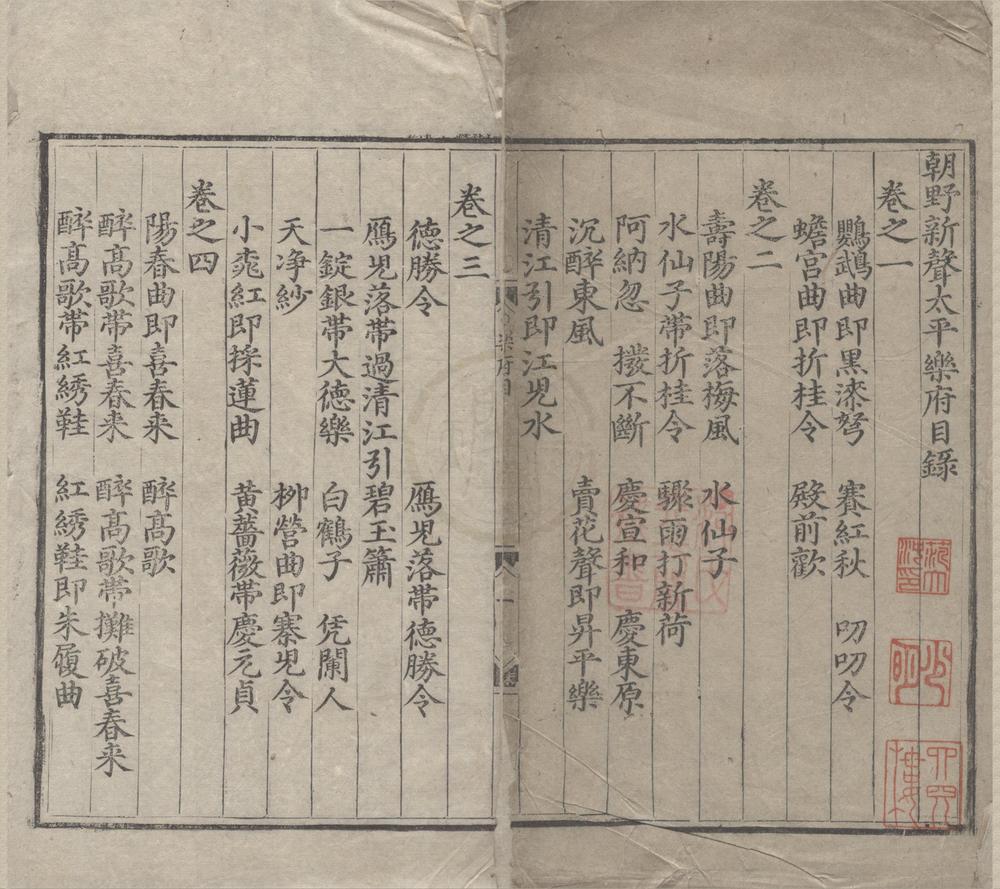 朝野新聲太平樂府目錄
卷之一
鸚鵡曲即黑漆弩　塞紅秋　叨叨令
蟾宮曲即折桂令　殿前歡
卷之二
壽陽曲即落梅風　水仙子
水仙子帶折桂令　驟雨打新荷
阿納忽　撥不斷　慶宣和　慶東原
沉醉東風　賣花聲即昇平樂
清江引即江兒水
卷之三
德勝令　鴈兒落帶德勝令
鴈兒落帶過清江引碧玉簫
一錠銀帶大德樂　白鶴子　凭闌人
天净紗　柳營曲即寨兒令
小桃紅即採蓮曲　黃薔薇帶慶元貞
卷之四
陽春曲即喜春来　醉高歌
醉高歌帶喜春来　醉高歌帶攤破喜春来
醉高歌帶紅綉鞋　紅綉鞋即朱履曲
樂府目
一